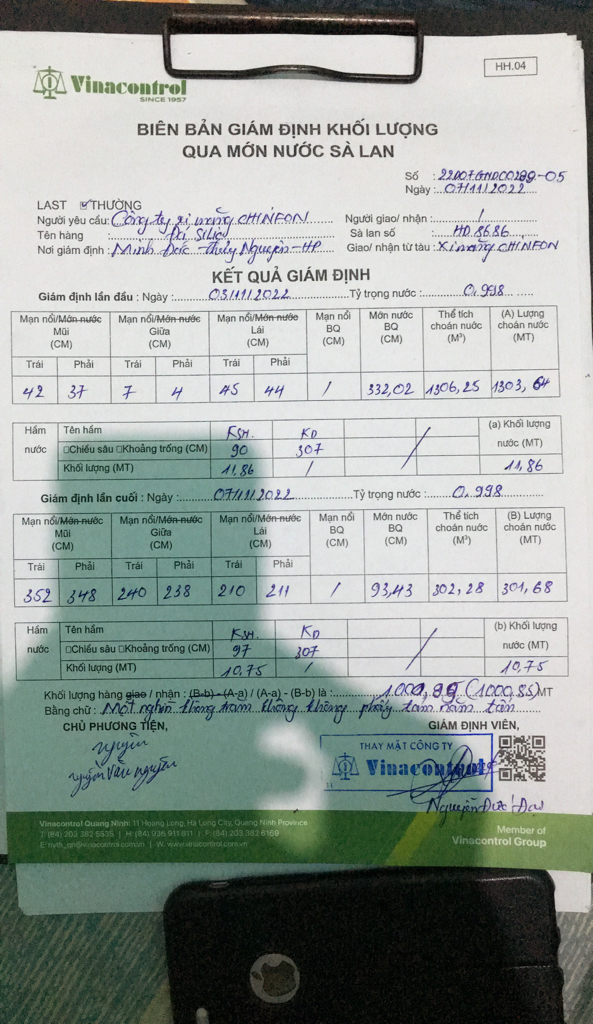 HH.04
Vinacontrol
SINCE 1957
BIÊN BẢN GIÁM ĐỊNH KHỐI LƯỢNG
QUA MỚN NƯỚC SÀ LAN
Số : 22D07GHDC0289-05
Ngày : 07/11/2022
LAST THƯỜNG
Người yêu cầu: Công ty xi măng CHINFON Người giao/ nhận : /
Tên hàng : Đá Silic Sà lan số : HD 8686
Nơi giám định : Minh Đức - Thủy Nguyên - HP Giao/ nhận từ tàu : Xi măng CHINFON
KẾT QUẢ GIÁM ĐỊNH
Giám định lần đầu : Ngày : 03/11/2022 Tỷ trọng nước : 0.998
Mạn nổi/Mớn nước Mũi (CM) Mạn nổi/Mớn nước Giữa (CM) Mạn nổi/Mớn nước Lái (CM) Mạn nổi BQ (CM) Mớn nước BQ (CM) Thể tích choán nước (M³) (A) Lượng choán nước (MT)
Trái Phải Trái Phải Trái Phải
42 37 7 4 45 44 / 332,02 1306,25 1303,64
Hầm nước Tên hầm KSH. KD (a) Khối lượng nước (MT)
Chiều sâu Khoảng trống (CM) 90 307
Khối lượng (MT) 11,86 / 11,86
Giám định lần cuối : Ngày : 07/11/2022 Tỷ trọng nước : 0.998
Mạn nổi/Mớn nước Mũi (CM) Mạn nổi/Mớn nước Giữa (CM) Mạn nổi/Mớn nước Lái (CM) Mạn nổi BQ (CM) Mớn nước BQ (CM) Thể tích choán nước (M³) (B) Lượng choán nước (MT)
Trái Phải Trái Phải Trái Phải
352 348 240 238 210 211 / 93,43 302,28 301,68
Hầm nước Tên hầm KSH. KD (b) Khối lượng nước (MT)
Chiều sâu Khoảng trống (CM) 97 307
Khối lượng (MT) 10,75 / 10,75
Khối lượng hàng giao / nhận : (B-b) - (A-a) / (A-a) - (B-b) là : (1000,85) MT
Bằng chữ : Một nghìn không trăm không không phẩy tám năm tấn
CHỦ PHƯƠNG TIỆN, GIÁM ĐỊNH VIÊN,
THAY MẶT CÔNG TY
Vinacontrol
Nguyễn Văn Nguyên
Nguyễn Đức Đại
Vinacontrol Quang Ninh: 11 Hoang Long, Ha Long City, Quang Ninh Province
Member of
Vinacontrol Group